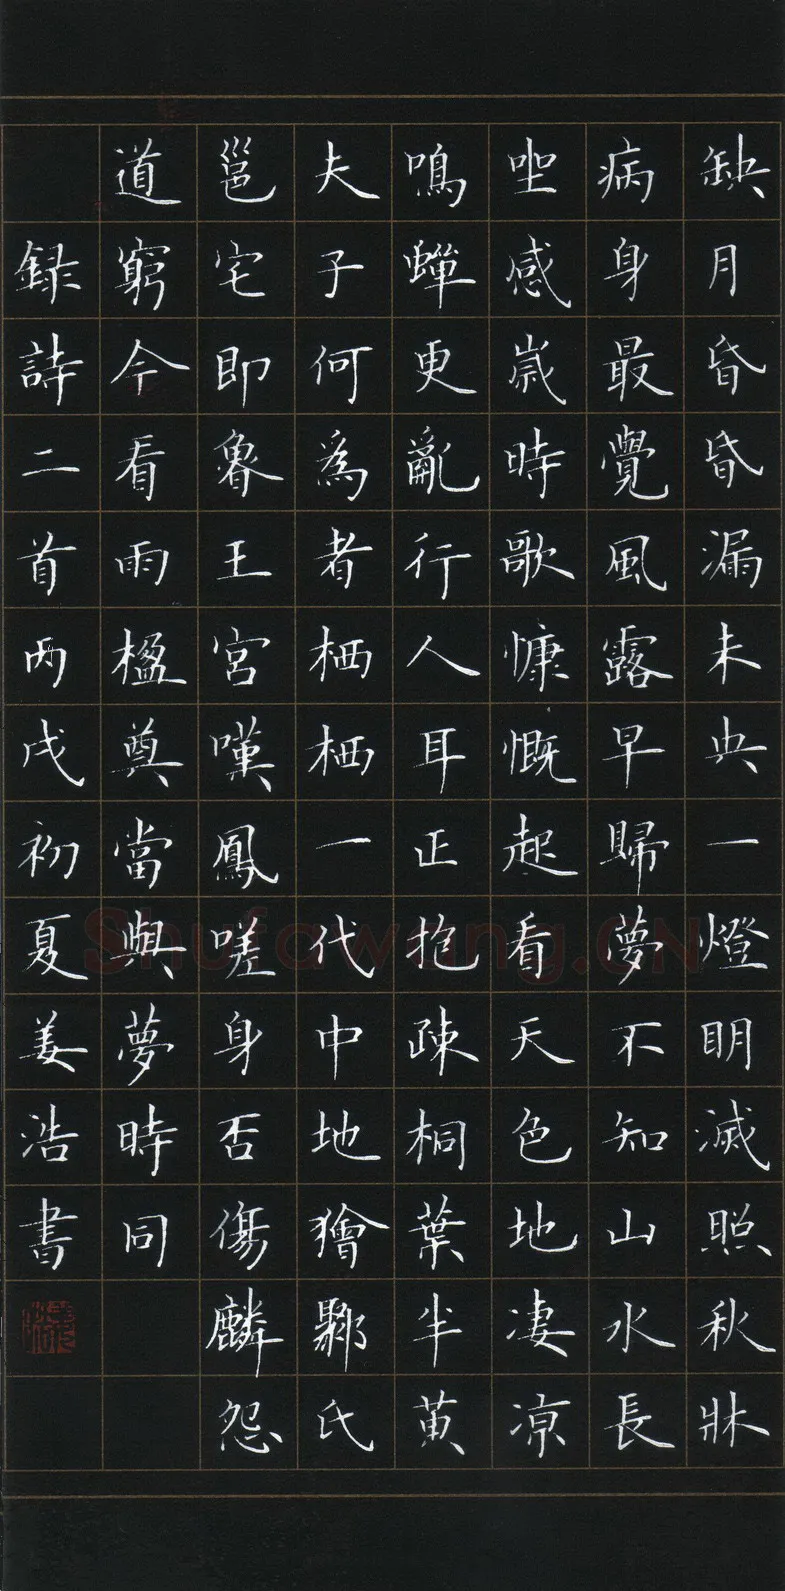 缺月昏昏漏未央一燈明滅照秋牀
病身最覺風露早歸夢不知山水長
坐感歲時歌慷慨起看天色地凄凉
鳴蟬更亂行人耳正抱疎桐葉半黄
夫子何為者栖栖一代中地獪鄹氏
邕宅即魯王宮嘆鳳嗟身否傷麟怨
道窮今看兩楹奠當與夢時同
録詩二首丙戌初夏姜浩書
Shufawang.CN